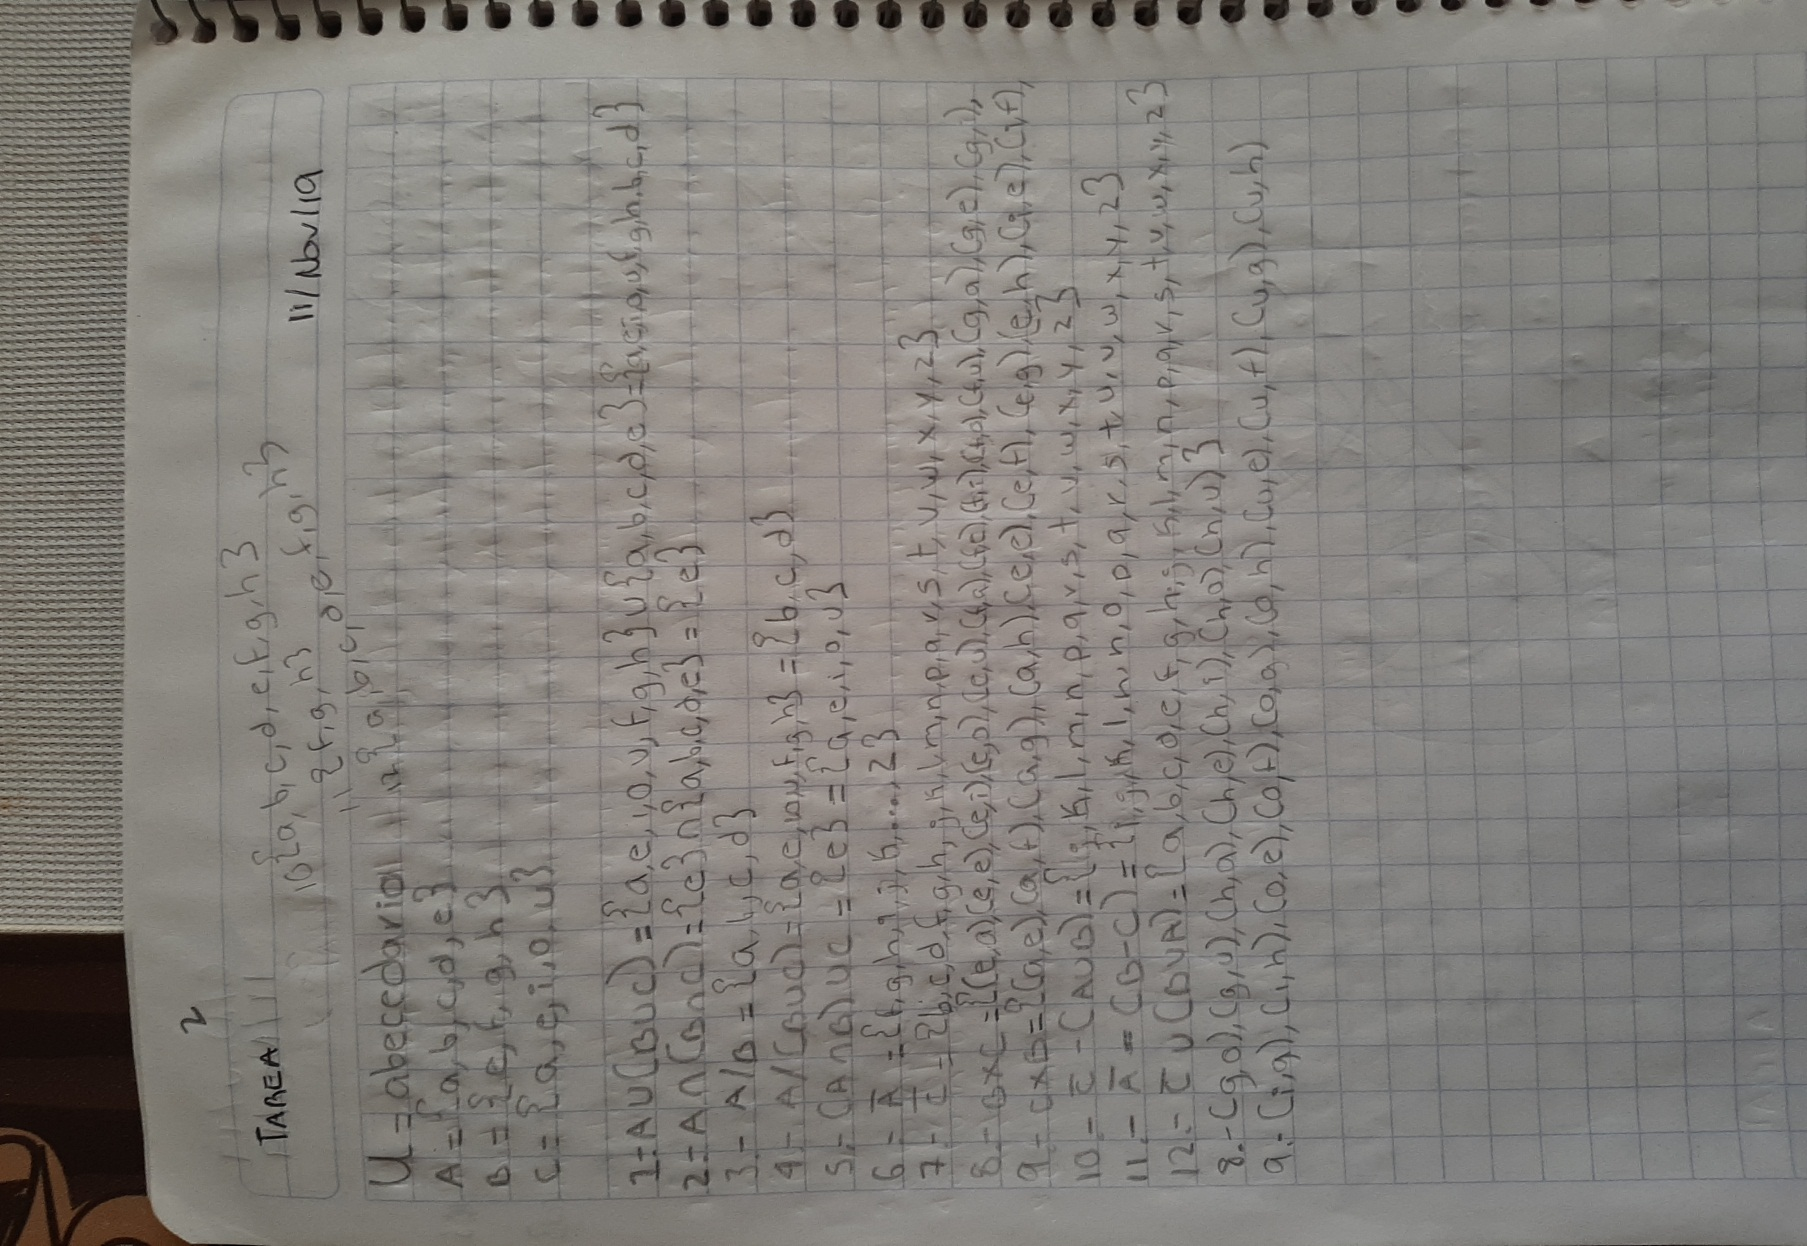 2
TAREA
11/Nov/19
10 {a, b, c, d, e, f, g, h}
{f, g, h}
11 {a, b, c, d, e, f, g, h}
U = abecedario
A = {a, b, c, d, e}
B = {e, f, g, h}
C = {a, e, i, o, u}
1.- A∪(B∪C) = {a, e, i, o, u, f, g, h} ∪ {a, b, c, d, e} = {a, e, i, o, u, f, g, h, b, c, d}
2.- A∩(B∩C) = {e} ∩ {a, b, c, d, e} = {e}
3.- A/B = {a, b, c, d}
4.- A/(B∪C) = {a, e, i, o, u, f, g, h} = {b, c, d}
5.- (A∩B)∪C = {e} = {a, e, i, o, u}
6.- A̅ = {f, g, h, i, j, k, ..., z}
7.- C̅ = {b, c, d, f, g, h, j, k, l, m, n, p, q, r, s, t, v, w, x, y, z}
8.- B×C = {(e,a),(e,e),(e,i),(e,o),(e,u),(f,a),(f,e),(f,i),(f,o),(f,u),(g,a),(g,e),(g,i),
9.- C×B = {(a,e),(a,f),(a,g),(a,h),(e,e),(e,f),(e,g),(e,h),(i,e),(i,f),
10.- C̅ - (A∪B) = {j, k, l, m, n, p, q, r, s, t, v, w, x, y, z}
11.- A̅ = (B-C) = {i, j, k, l, m, n, o, p, q, r, s, t, u, v, w, x, y, z}
12.- C̅ ∪ (B∪A) = {a, b, c, d, e, f, g, h, j, k, l, m, n, p, q, r, s, t, v, w, x, y, z}
8.- (g,o),(g,u),(h,a),(h,e),(h,i),(h,o),(h,u)}
9.- (i,g),(i,h),(o,e),(o,f),(o,g),(o,h),(u,e),(u,f),(u,g),(u,h)